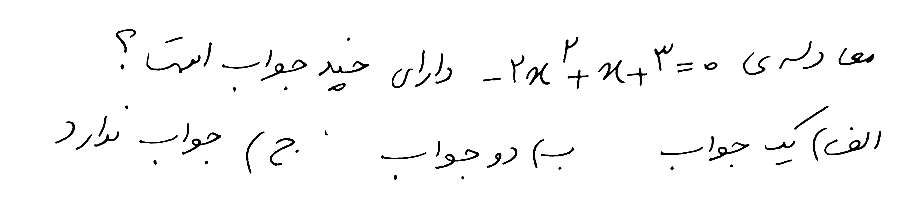 معادله‌ی -۲x^۲+x+۳=۰ دارای چند جواب است؟
الف) یک جواب ب) دو جواب ج) جواب ندارد